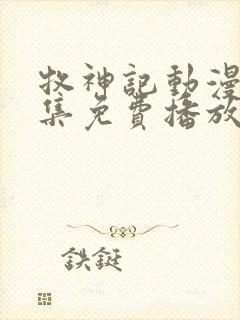 牧神記動漫
集免費播放
鉄鋌